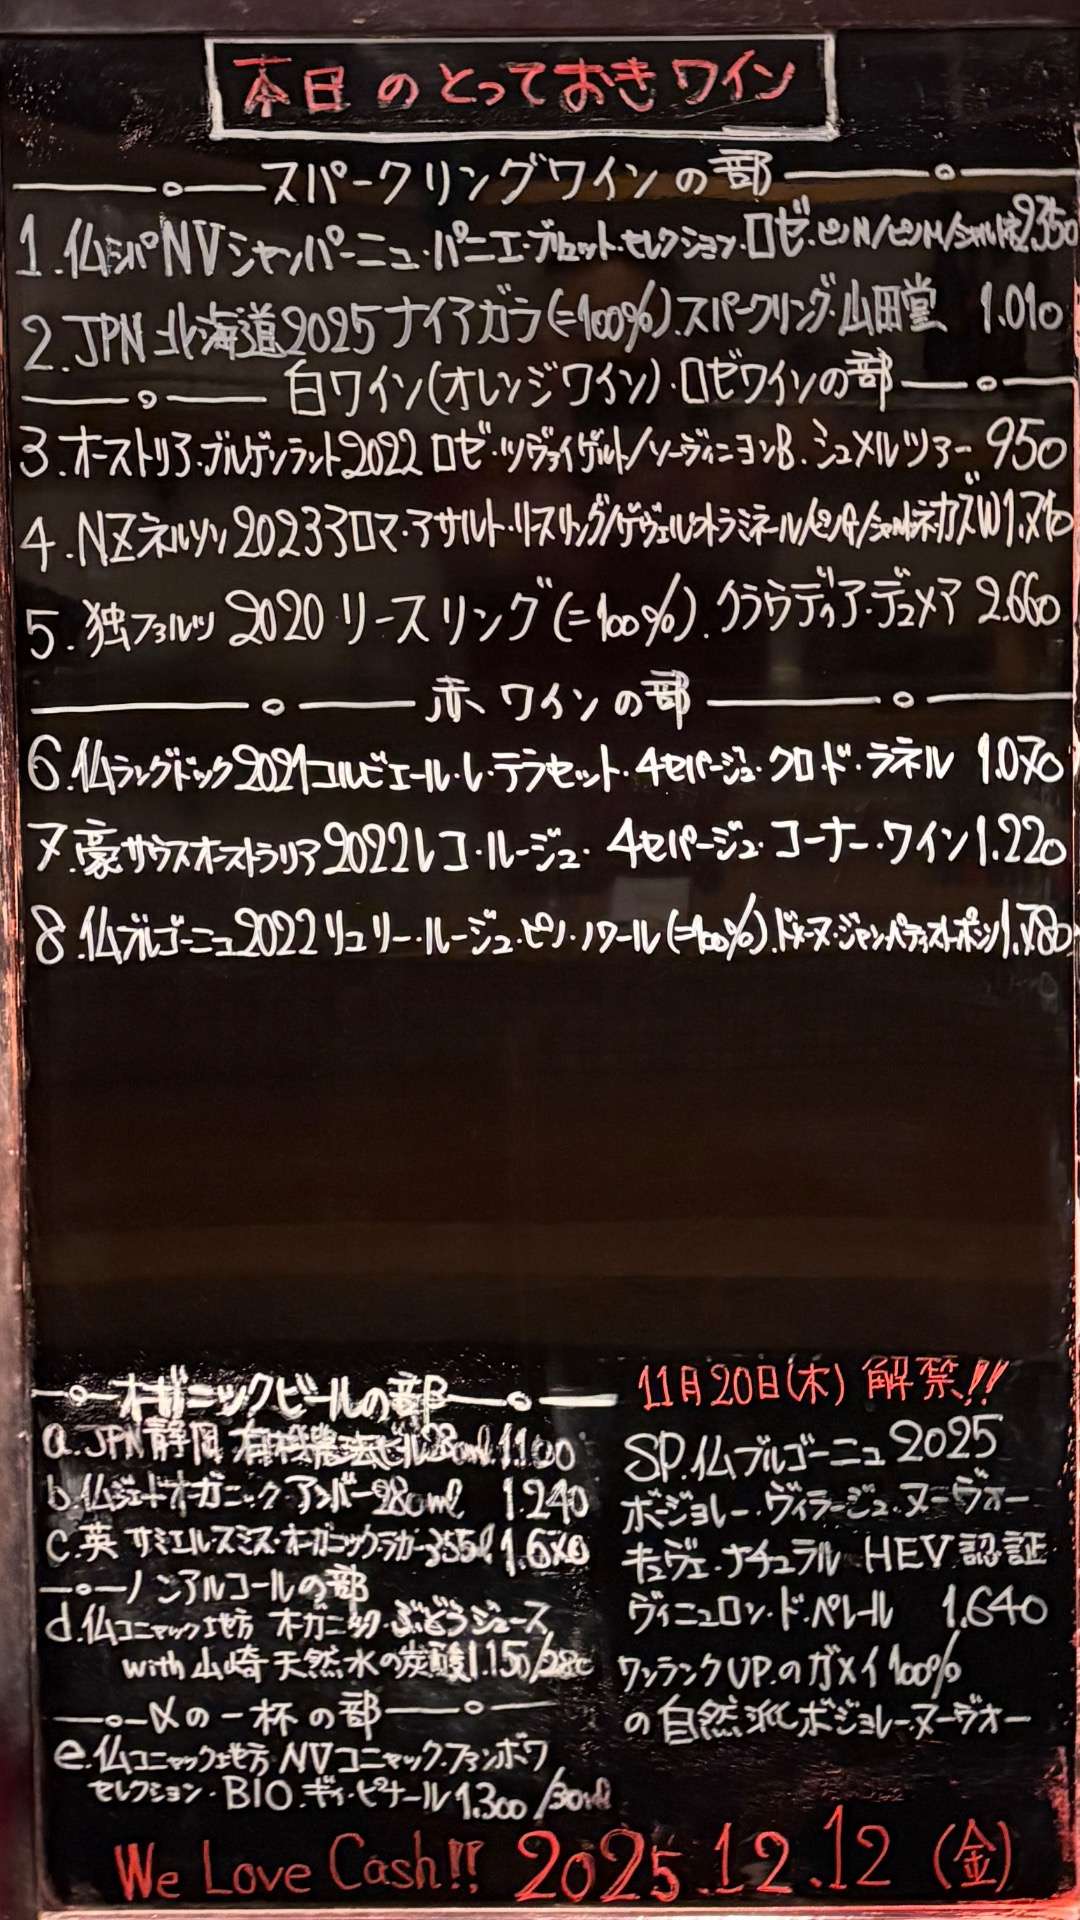 本日のとっておきワイン
スパークリングワインの部
1.仏シャンパNVシャンパーニュ・パニエ・ブリュット・セレクション・ロゼ・ピノN/ピノM/シャルドネ 2.350
2.JPN北海道2025ナイアガラ(=100%).スパークリング・山田堂 1.010
白ワイン(オレンジワイン)・ロゼワインの部
3.オーストリア・ブルゲンラント2022 ロゼ・ツヴァイゲルト/ソーヴィニヨンB.シュメルツァー 950
4.NZネルソン2023 アロマ・アサルト・リースリング/ゲヴェルツトラミネール/ピノG/シャルドネ カズW
5.独ファルツ 2020 リースリング(=100%).クラウディア・デュメア 2.660
赤ワインの部
6.仏ラングドック2021コルビエール・レ・テラセット・4セパージュ・クロ・ド・ラネル 1.070
7.豪サウスオーストラリア2022レコ・ルージュ・4セパージュ・コーナー・ワイン 1.220
8.仏ブルゴーニュ2022リュリー・ルージュ・ピノ・ノワール(=100%).ドメーヌ・ジャン・バティスト・ポンソ 1.780
オガニックビールの部
a.JPN静岡 有機農法ビール 1.100
b.仏ジェードオガニック アンバー280ml 1.240
c.英 サミエルスミス・オーガニックラガー355ml
ノンアルコールの部
d.仏コニャック地方 オガニック・ぶどうジュース
with山崎天然水の炭酸 1.150
〆の一杯の部
e.仏コニャック地方 NVコニャック・ファンボワ
セレクション・BIO.ギィ・ピナール 1.300/30ml
11月20日(木)解禁!!
SP.仏ブルゴーニュ2025
ボージョレー・ヴィラージュ・ヌーヴォー
キュヴェ・ナチュラル HEV認証
ヴィニュロン・ド・ペレール 1.640
ワンランクUP.のガメイ100%
の自然派ボジョレー・ヌーヴォー
We Love Cash!! 2025.12.12(金)